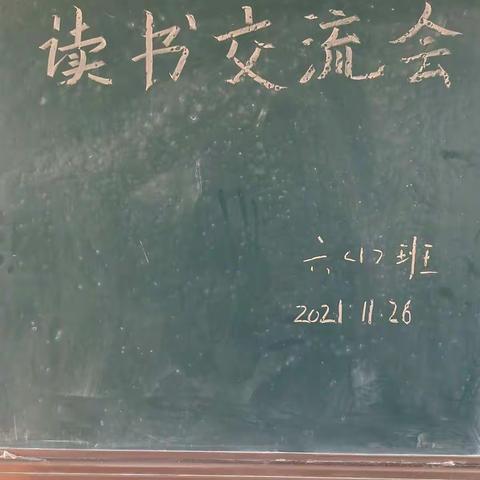 读书交流会
六<1>班
2021.11.26